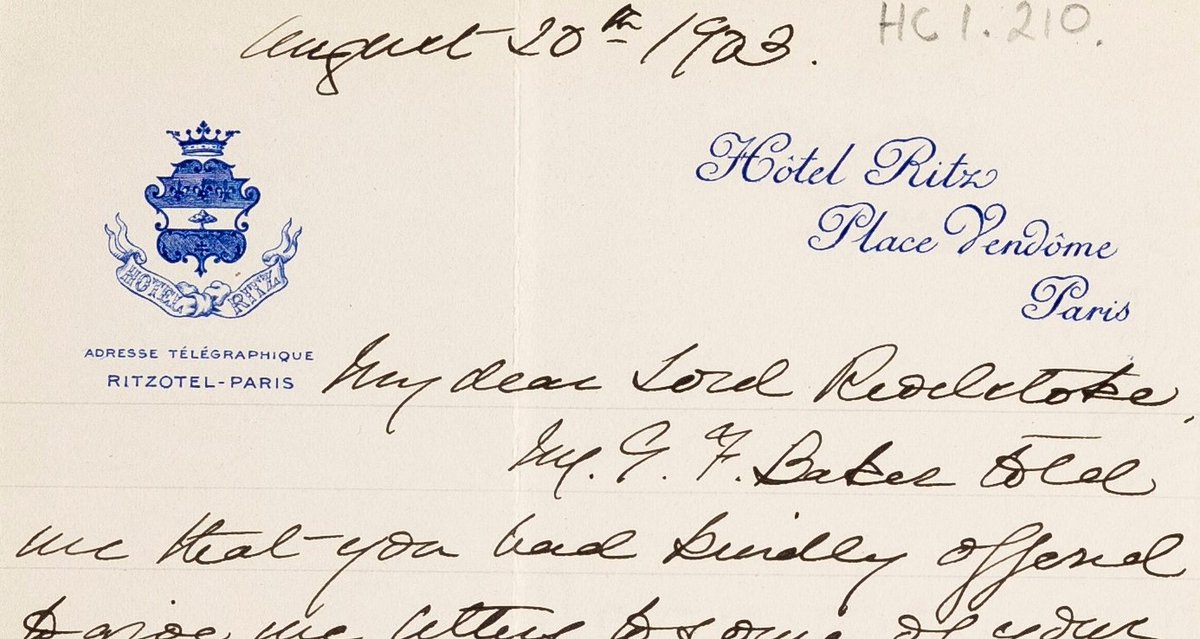 August 20th 1923.
HC 1.210.
Hôtel Ritz
Place Vendôme
Paris
HOTEL RITZ
ADRESSE TÉLÉGRAPHIQUE
RITZOTEL-PARIS
My dear Lord Revelstoke,
Mr. G. F. Baker told
me that you had kindly offered
to give me letters to some of your